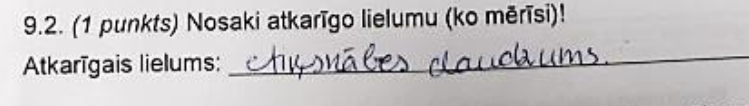 9.2. (1 punkts) Nosaki atkarīgo lielumu (ko mērīsi)!
Atkarīgais lielums: daudzums.